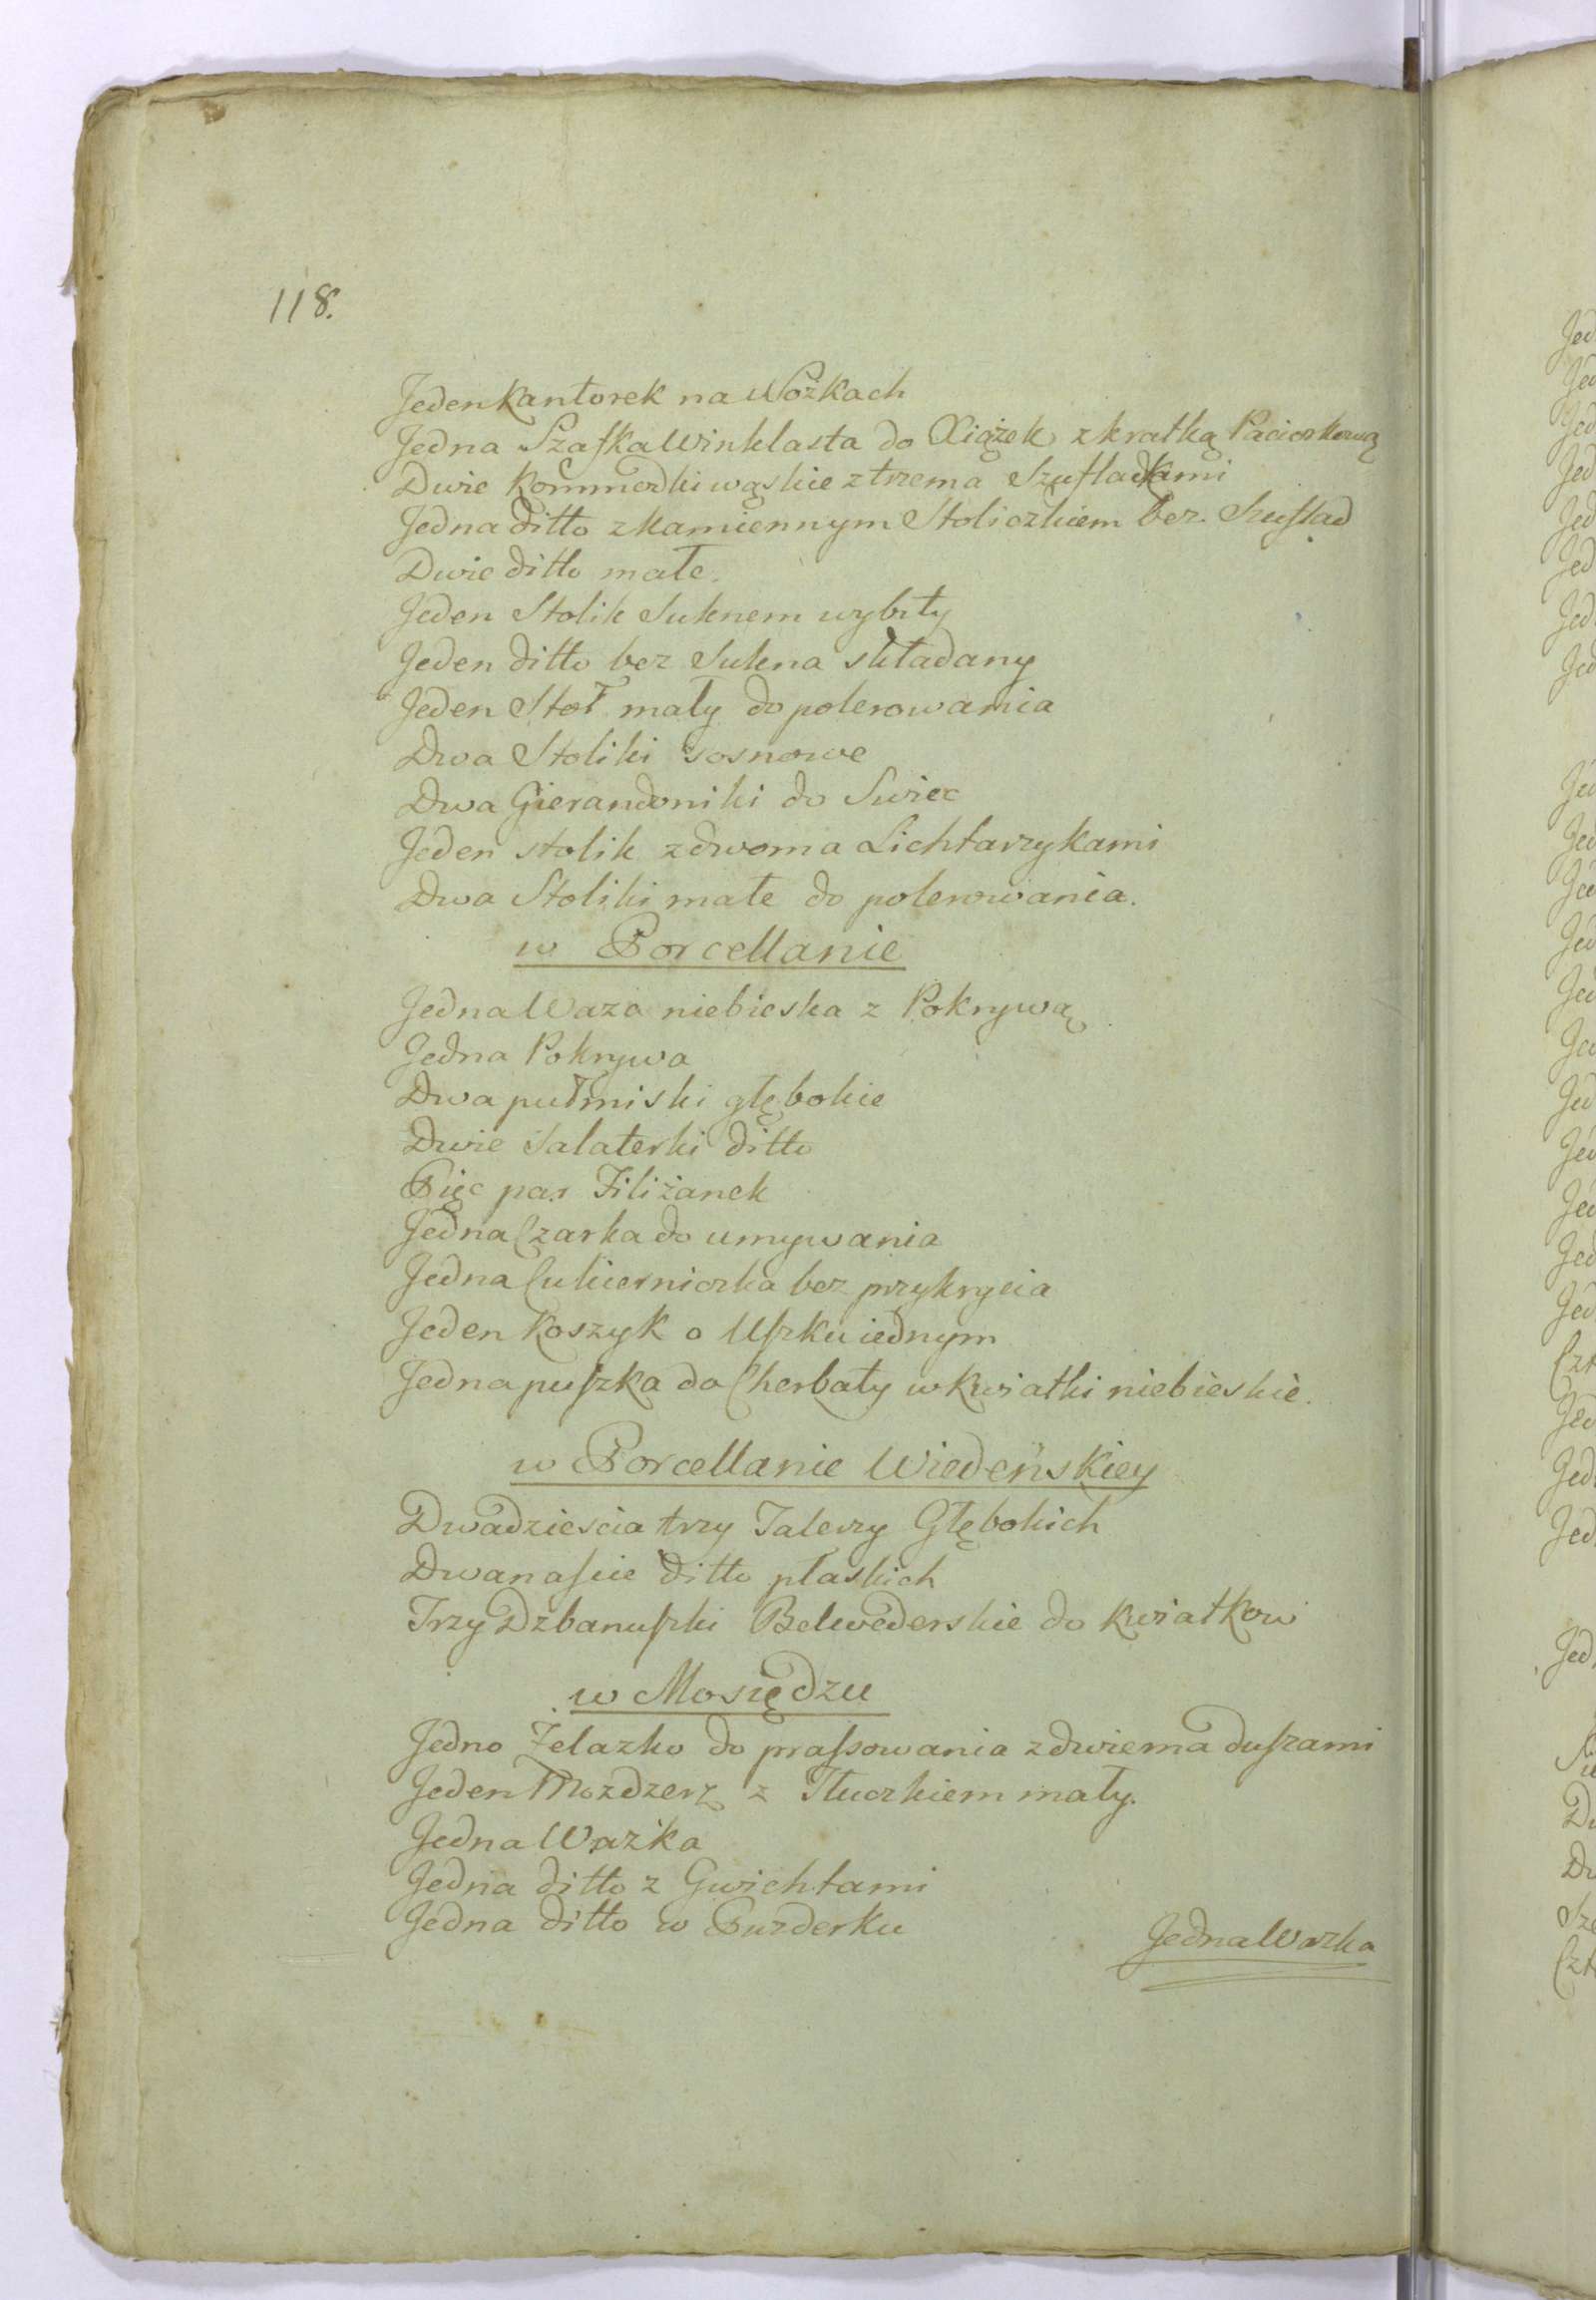 118.
Jeden Kantorek na Wożkach
Jedna Szafka Winklasta do Xiążek z kratką Paciorkową
Dwie Kommodki wąskie z trzema Szufladkami
Jedna ditto z kamiennym Stoliczkiem bez Szuflad
Dwie ditto małe.
Jeden Stolik Suknem wybity
Jeden ditto bez Sukna składany
Jeden Stoł mały do polerowania
Dwa Stoliki sosnowe
Dwa Gierandoniki do Swiec
Jeden stolik z dwoma Lichtarzykami
Dwa Stoliki małe do polerowania.
w Porcellanie
Jedna Waza niebieska z Pokrywą
Jedna Pokrywa
Dwa pułmiski głębokie
Dwie Salaterki ditto
Pięc par Filiżanek
Jedna Czarka do umywania
Jedna Cukierniczka bez przykrycia
Jeden Koszyk o Uszku iednym
Jedna puszka do Cherbaty w kwiatki niebieskie.
w Porcellanie Wiedeńskiey
Dwadziescia trzy Talerzy Głębokich
Dwanascie ditto płaskich
Trzy Dzbanuszki Belwederskie do kwiatkow
w Mosiędzu
Jedno Żelazko do prassowania z dwiema duszami
Jeden Mozdzerz z Tłuczkiem mały.
Jedna Ważka
Jedna ditto z Gwichtami
Jedna ditto w Puzderku
Jedna Wazka